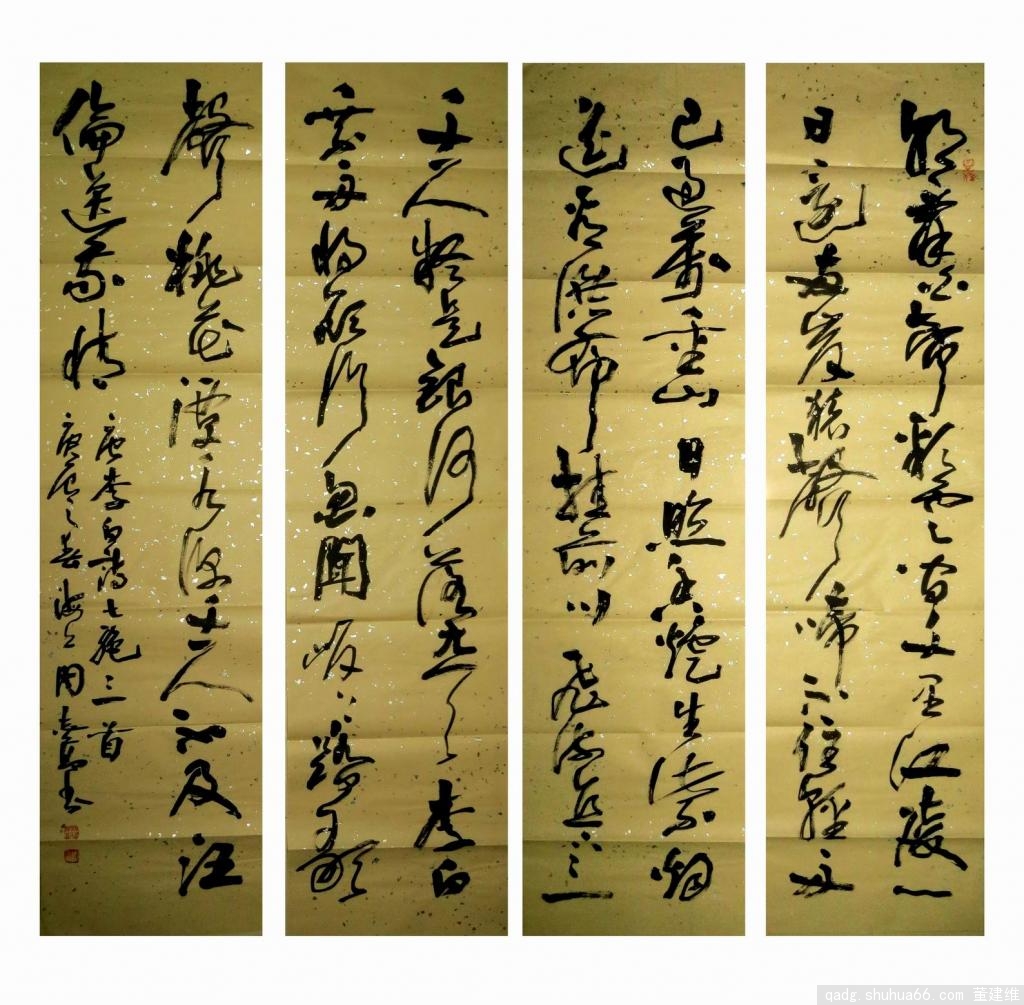 朝辭白帝彩雲間千里江陵一
日還兩岸猿聲啼不住輕舟
已過萬重山日照香爐生紫烟
遥看瀑布挂前川飛流直下三
千尺疑是銀河落九天李白
乘舟將欲行忽聞岸上踏歌
聲桃花潭水深千尺不及汪
倫送我情
唐李白詩七絶三首
庚辰之春海上周書
qadg.shuhua66.com 董建维